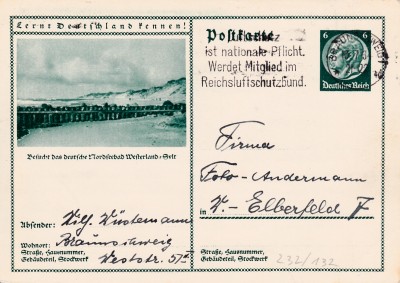 Lernt Deutschland kennen!
Postkarte
ist nationale Pflicht.
Werdet Mitglied im
Reichsluftschutzbund.
6 6
Deutsches Reich
Besucht das deutsche Nordseebad Westerland-Sylt
Absender: Wilh. Wüstemann
Wohnort: Braunschweig
Straße, Hausnummer,
Gebäudeteil, Stockwerk
Firma
Foto-Andermann
in W.-Elberfeld
Straße, Hausnummer,
Gebäudeteil, Stockwerk
232/132